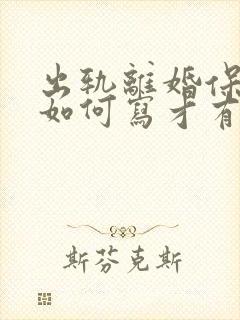 出轨離婚保
如何寫才有
斯芬克斯